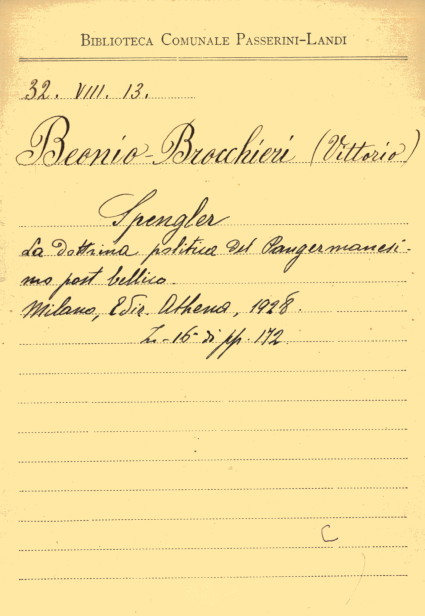 BIBLIOTECA COMUNALE PASSERINI-LANDI
32. VIII. 13.
Beonio-Brocchieri (Vittorio)
Spengler
La dottrina politica del Pangermanesi-
mo post bellico.
Milano, Ediz. Athena, 1928.
In-16 di pp. 172
C